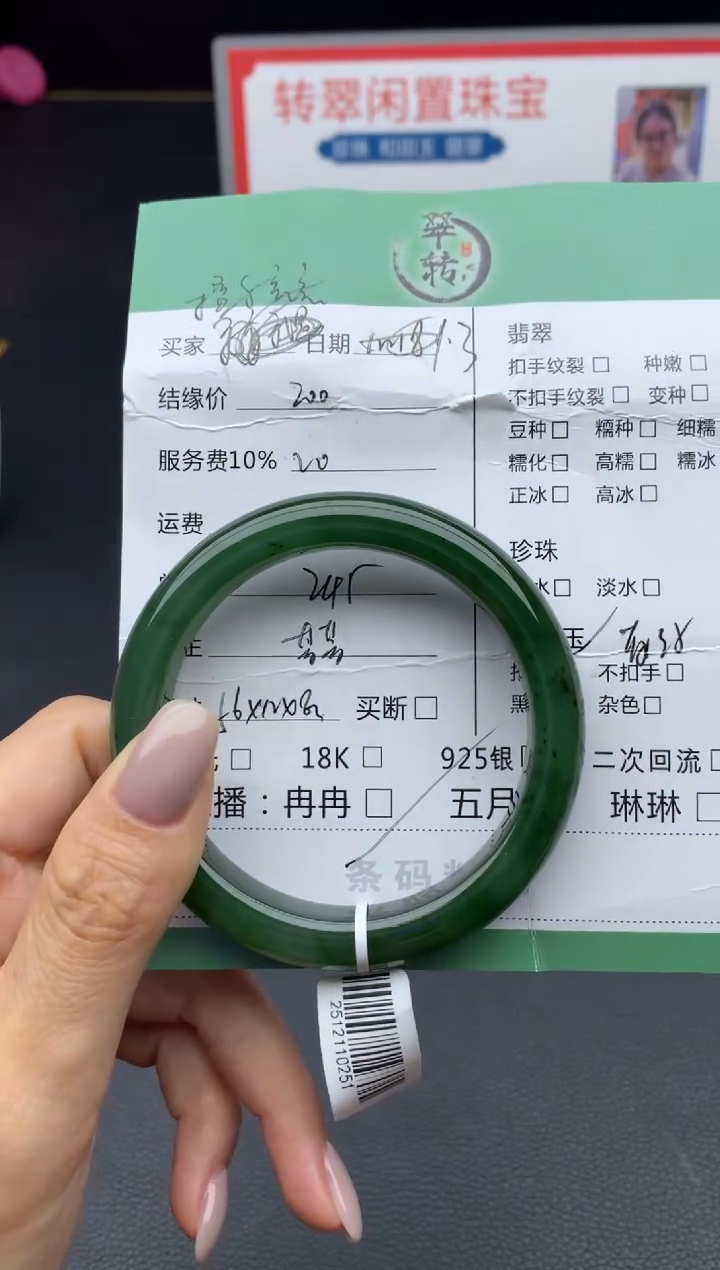 转翠闲置珠宝
翠
转
买家 日期
结缘价 200
服务费10% 20
运费
245
56x12x8
买断 □
18K □ 925银
播：冉冉 □ 五月 琳琳 □
条码
翡翠
扣手纹裂 □ 种嫩 □
不扣手纹裂 □ 变种 □
豆种 □ 糯种 □ 细糯
糯化 □ 高糯 □ 糯冰
正冰 □ 高冰 □
珍珠
水 □ 淡水 □
玉
不扣手 □
黑 杂色 □
二次回流 □
2512110251